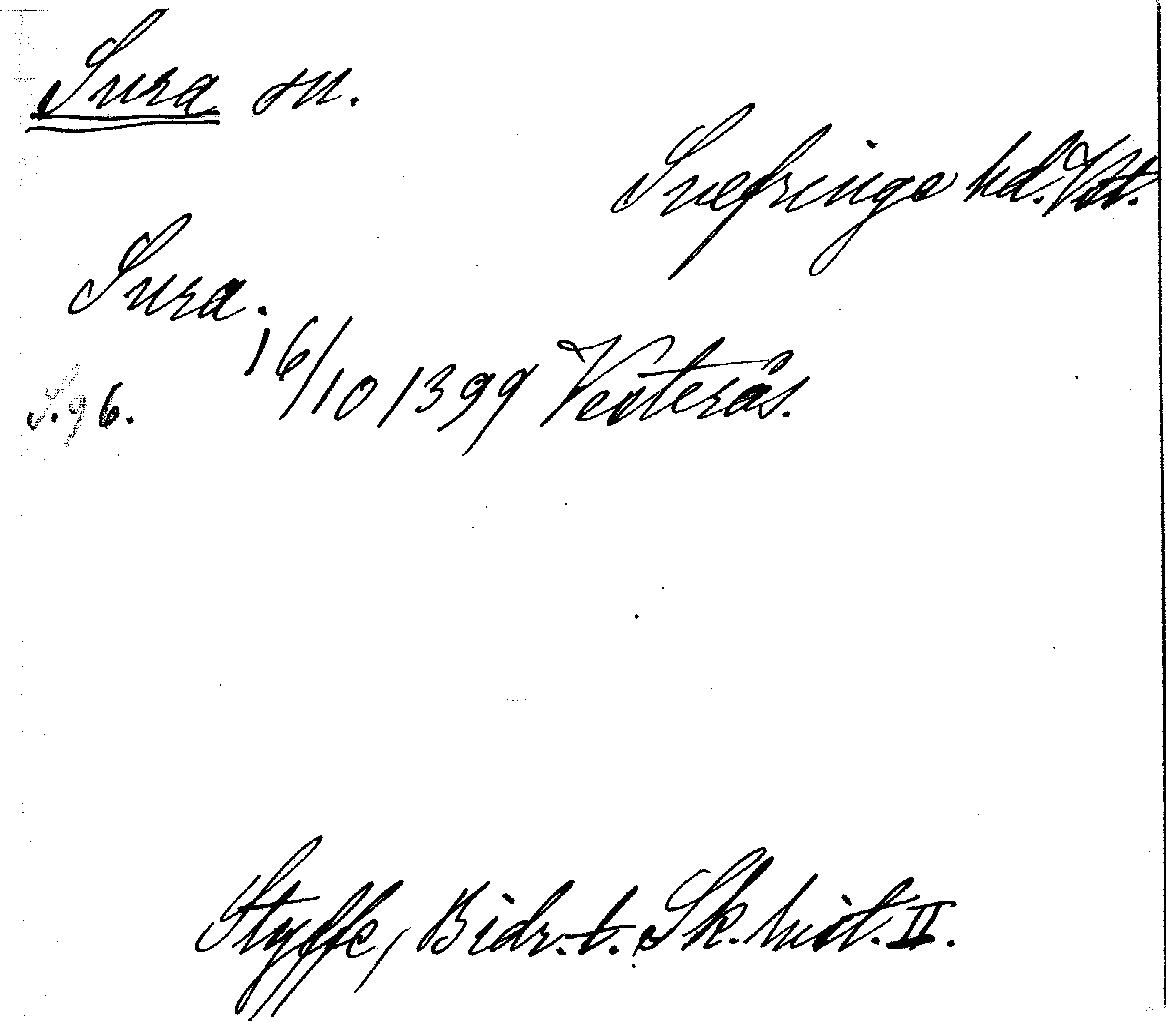 Sura sn.
Snefringe hd. Vstm.
Sura.
16/10 1399 Vesterås.
S. 96.
Styffe, Bidr. t. Sk. hist. II.